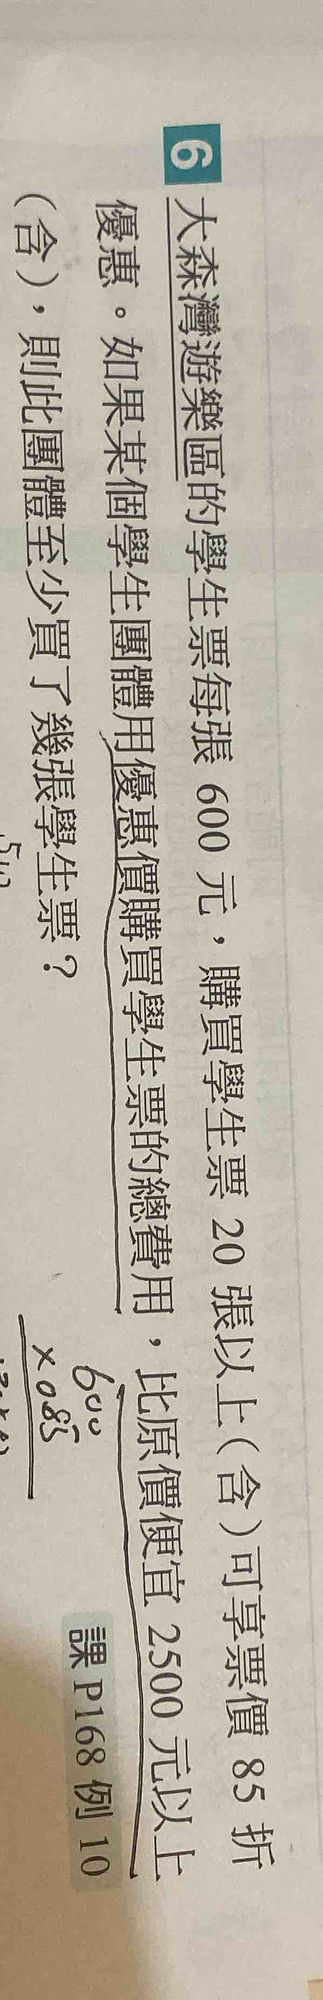 6 大森灣遊樂區的學生票每張 600 元，購買學生票 20 張以上（含）可享票價 85 折
優惠。如果某個學生團體用優惠價購買學生票的總費用，比原價便宜 2500 元以上
（含），則此團體至少買了幾張學生票？
課 P168 例 10
600
×0.85